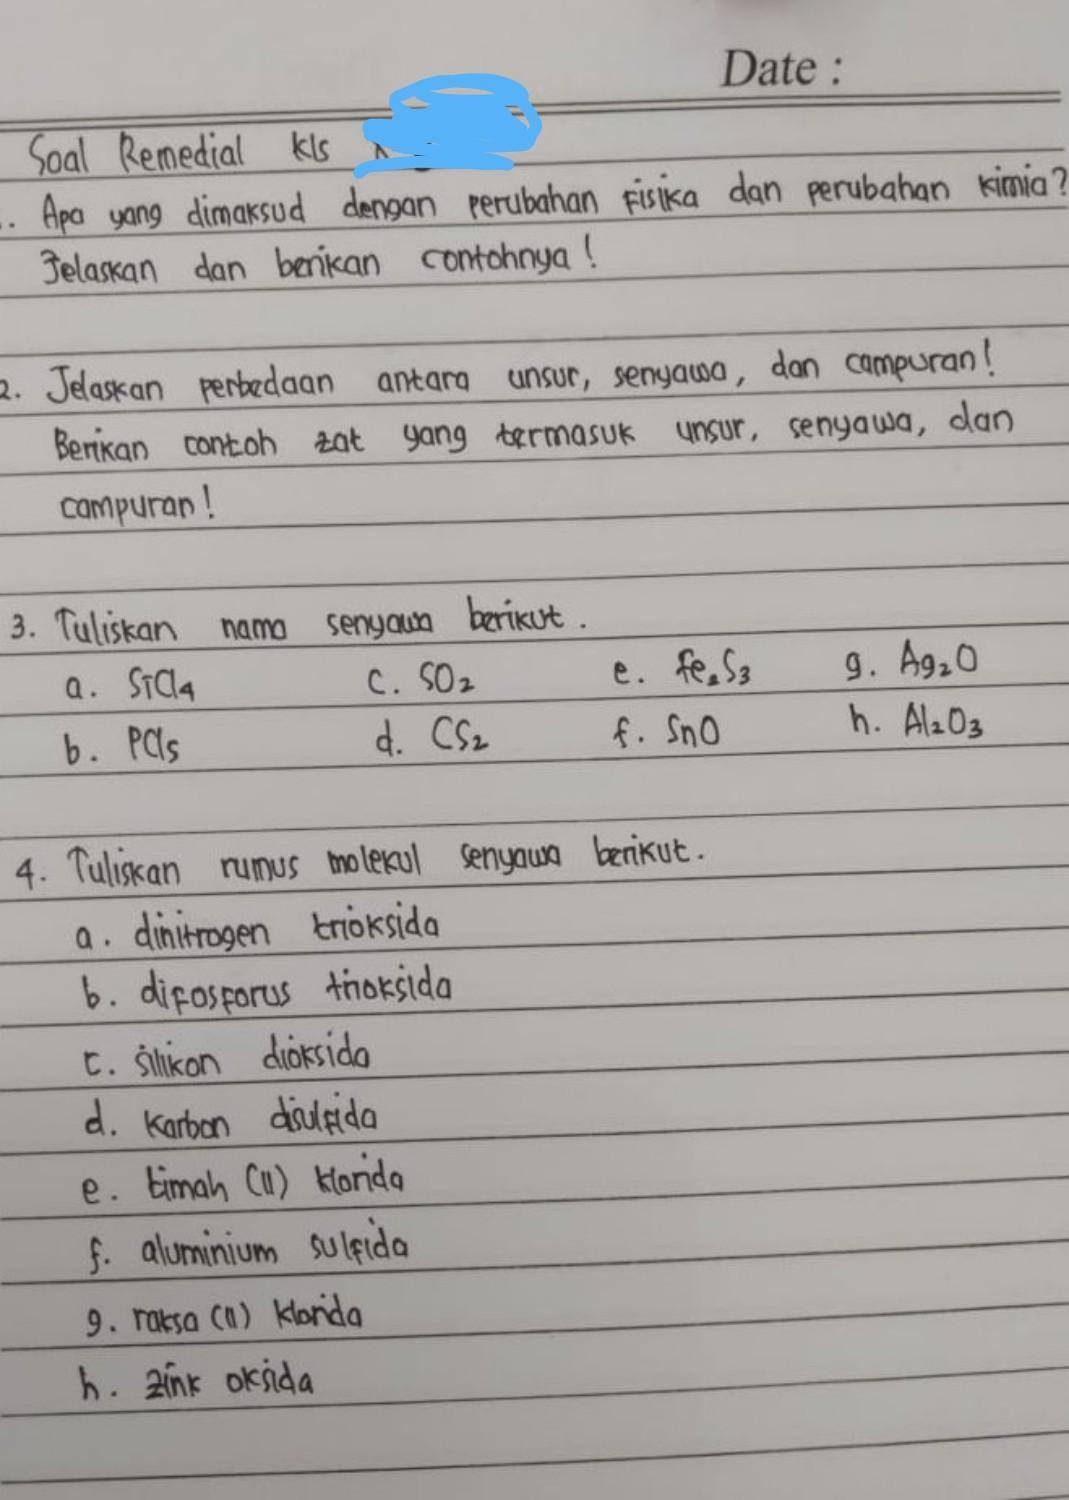 Date :
Soal Remedial kls
. Apa yang dimaksud dengan perubahan fisika dan perubahan kimia?
Jelaskan dan berikan contohnya !
2. Jelaskan perbedaan antara unsur, senyawa, dan campuran!
Berikan contoh zat yang termasuk unsur, senyawa, dan
campuran!
3. Tuliskan nama senyawa berikut.
a. SiCl4 c. SO2 e. Fe2S3 g. Ag2O
b. PCl5 d. CS2 f. SnO h. Al2O3
4. Tuliskan rumus molekul senyawa berikut.
a. dinitrogen trioksida
b. difosforus trioksida
c. silikon dioksida
d. karbon disulfida
e. timah (II) klorida
f. aluminium sulfida
g. raksa (II) klorida
h. zink oksida